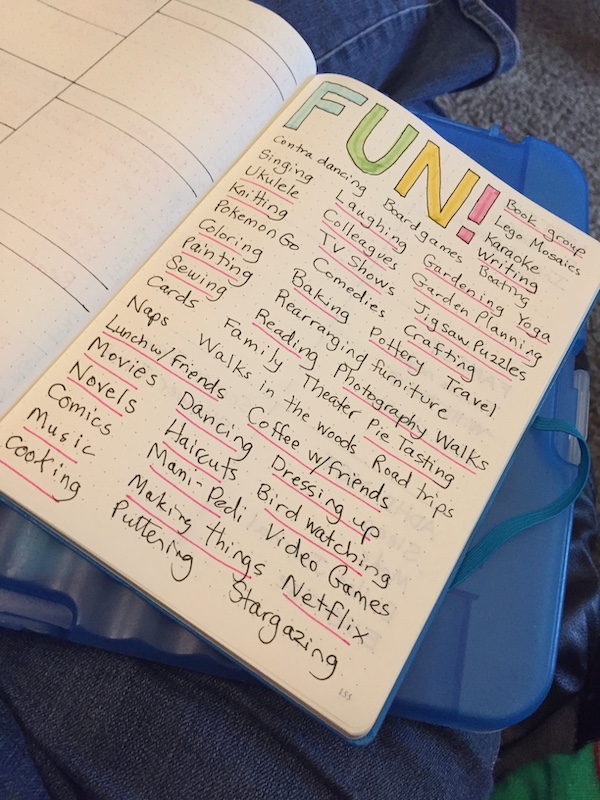 FUN!
Contra dancing
Singing
Ukulele
Knitting
Pokemon Go
Coloring
Painting
Sewing
Cards
Naps
Lunch w/friends
Movies
Novels
Comics
Music
Cooking
Laughing
Colleagues
TV Shows
Comedies
Baking
Rearranging furniture
Reading
Family
Walks in the woods
Dancing
Haircuts
Mani-Pedi
Making things
Puttering
Board games
Gardening
Garden Planning
Jigsaw Puzzles
Crafting
Pottery
Travel
Photography Walks
Theater
Pie Tasting
Road trips
Coffee w/friends
Dressing up
Bird watching
Video Games
Netflix
Stargazing
Book group
Lego Mosaics
Karaoke
Writing
Boating
Yoga
153